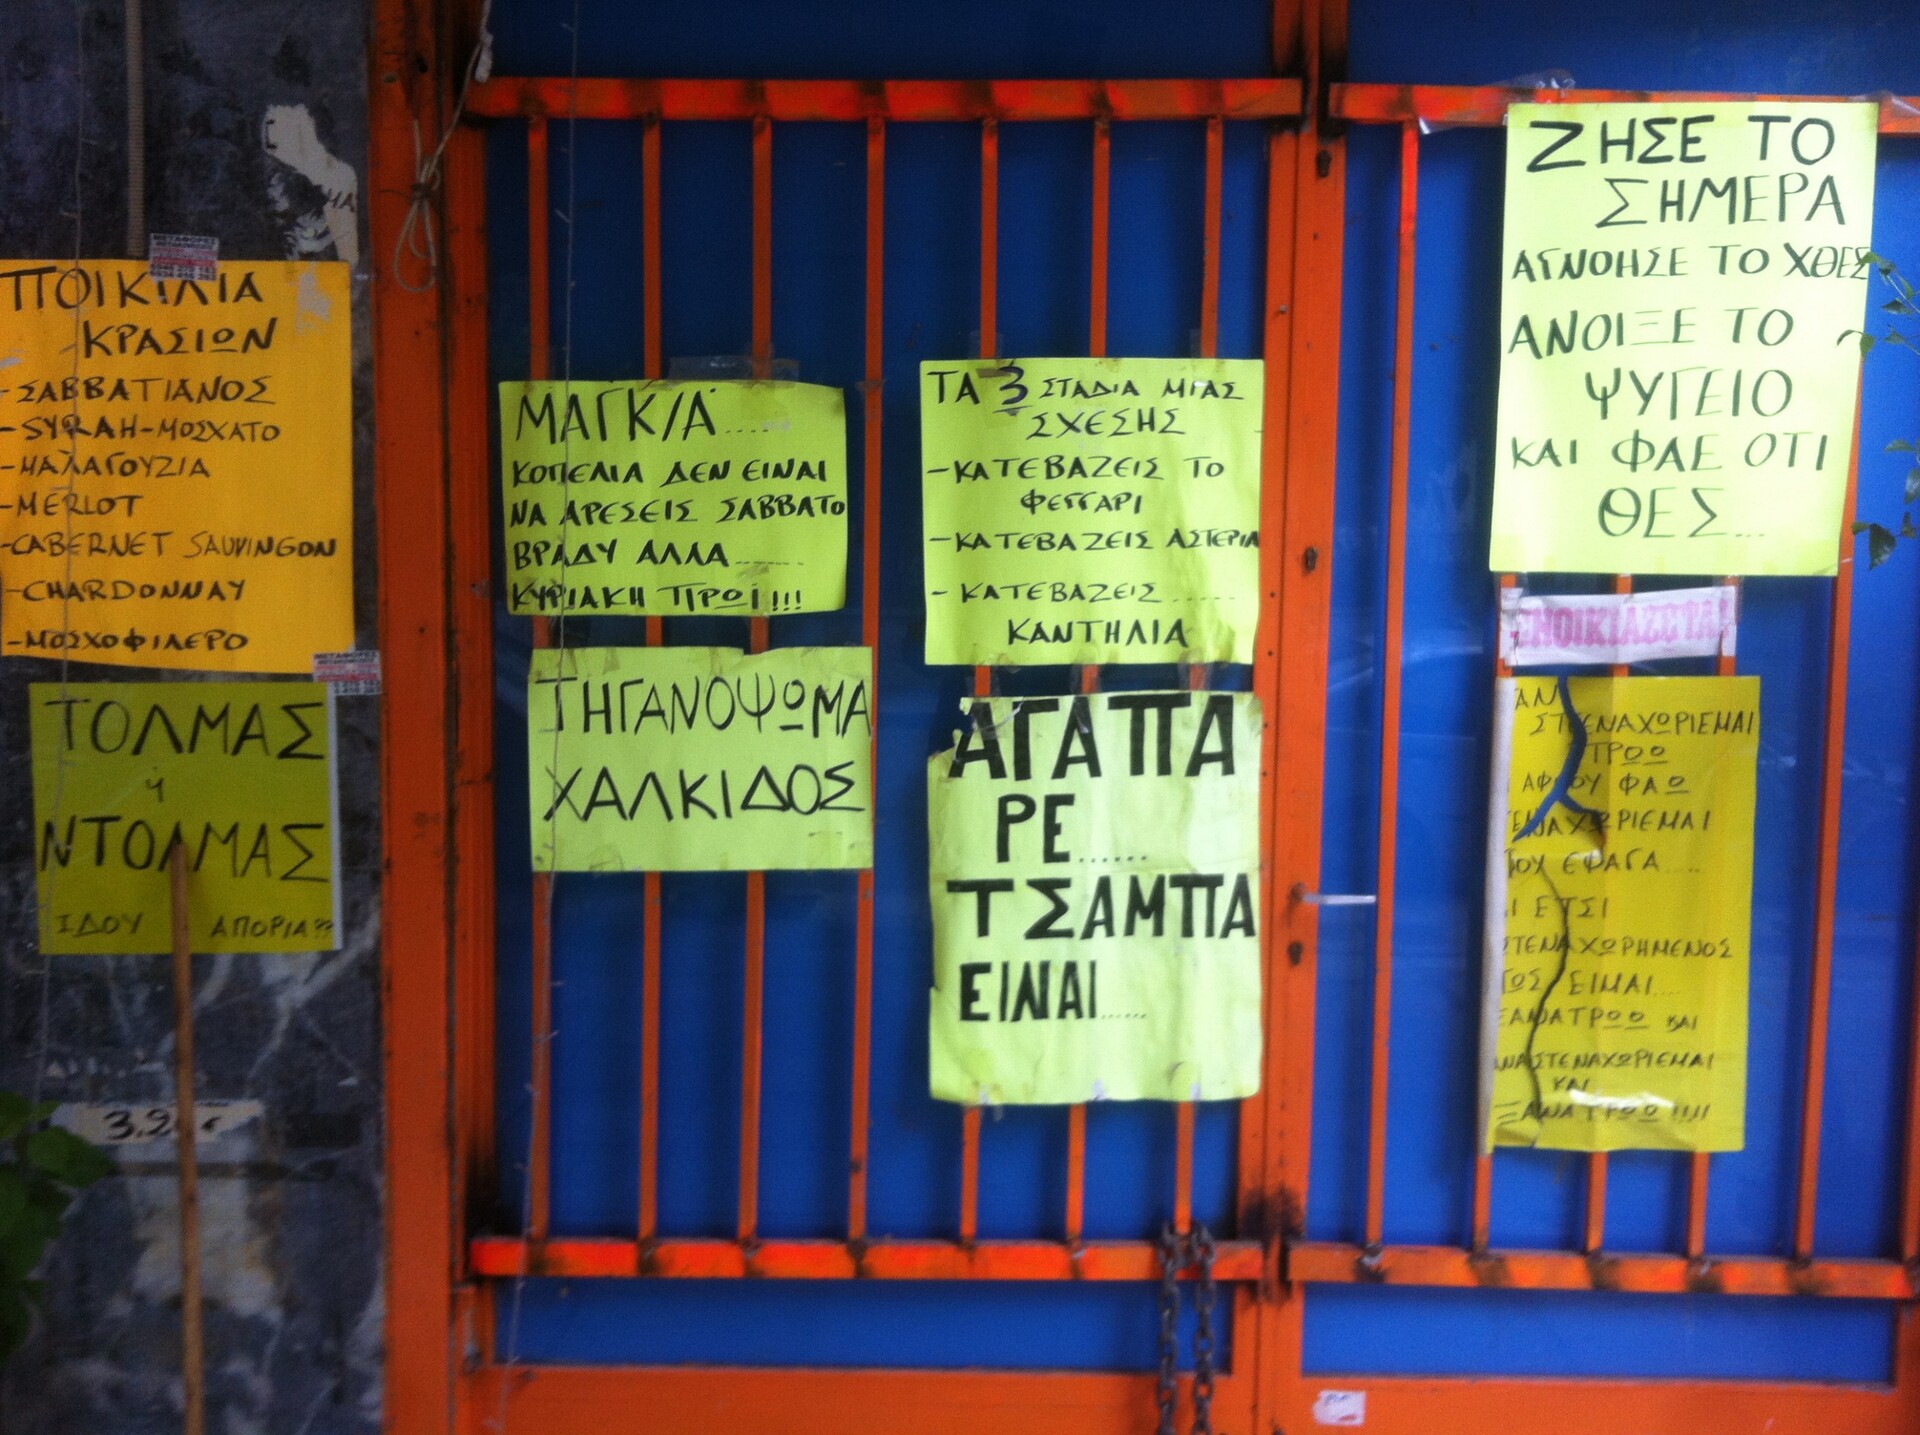 ΠΟΙΚΙΛΙΑ
ΚΡΑΣΙΩΝ
-ΣΑΒΒΑΤΙΑΝΟΣ
-SYRAH-ΜΟΣΧΑΤΟ
-ΜΑΛΑΓΟΥΖΙΑ
-MERLOT
-CABERNET SAUVINGON
-CHARDONNAY
-ΜΟΣΧΟΦΙΛΕΡΟ
ΤΟΛΜΑΣ
ή
ΝΤΟΛΜΑΣ
ΙΔΟΥ ΑΠΟΡΙΑ??
3.20€
ΜΑΓΚ/Α.....
ΚΟΠΕΛΙΑ ΔΕΝ ΕΙΝΑΙ
ΝΑ ΑΡΕΣΕΙΣ ΣΑΒΒΑΤΟ
ΒΡΑΔΥ ΑΛΛΑ........
ΚΥΡΙΑΚΗ ΠΡΩΪ!!!
ΤΗΓΑΝΟΨΩΜΑ
ΧΑΛΚΙΔΟΣ
ΤΑ 3 ΣΤΑΔΙΑ ΜΙΑΣ
ΣΧΕΣΗΣ
-ΚΑΤΕΒΑΖΕΙΣ ΤΟ
ΦΕΓΓΑΡΙ
-ΚΑΤΕΒΑΖΕΙΣ ΑΣΤΕΡΙΑ
-ΚΑΤΕΒΑΖΕΙΣ ......
ΚΑΝΤΗΛΙΑ
ΑΓΑΠΑ
ΡΕ......
ΤΣΑΜΠΑ
ΕΙΝΑΙ.....
ΖΗΣΕ ΤΟ
ΣΗΜΕΡΑ
ΑΓΝΟΗΣΕ ΤΟ ΧΘΕΣ
ΑΝΟΙΞΕ ΤΟ
ΨΥΓΕΙΟ
ΚΑΙ ΦΑΕ ΟΤΙ
ΘΕΣ...
ΕΝΟΙΚΙΑΖΕΤΑΙ
ΑΝ
ΣΤΕΝΑΧΩΡΙΕΜΑΙ
ΤΡΩΩ
ΑΦΟΥ ΦΑΩ
ΕΝΑΧΩΡΙΕΜΑΙ
ΠΟΥ ΕΦΑΓΑ.....
Ι ΕΤΣΙ
ΣΤΕΝΑΧΩΡΗΜΕΝΟΣ
ΠΩΣ ΕΙΜΑΙ....
ΞΑΝΑΤΡΩΩ ΚΑΙ
ΑΝΑΣΤΕΝΑΧΩΡΙΕΜΑΙ
ΚΑΙ
ΞΑΝΑΤΡΩΩ!!!!